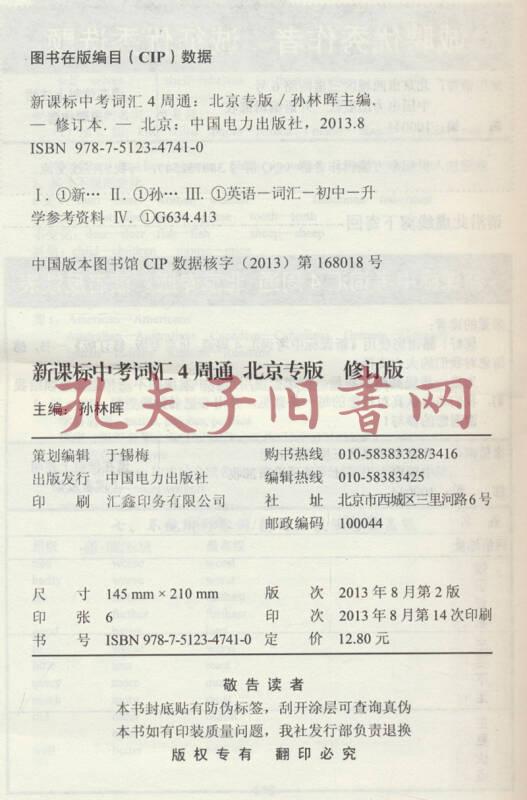 图书在版编目(CIP)数据
新课标中考词汇4周通:北京专版/孙林晖主编.
—修订本.—北京:中国电力出版社,2013.8
ISBN 978-7-5123-4741-0
Ⅰ.①新… Ⅱ.①孙… Ⅲ.①英语-词汇-初中-升
学参考资料 Ⅳ.①G634.413
中国版本图书馆CIP数据核字(2013)第168018号
新课标中考词汇4周通 北京专版 修订版
孔夫子旧书网
主编:孙林晖
策划编辑 于锡梅 购书热线 010-58383328/3416
出版发行 中国电力出版社 编辑热线 010-58383425
印 刷 汇鑫印务有限公司 社 址 北京市西城区三里河路6号
邮政编码 100044
尺 寸 145 mm×210 mm 版 次 2013年8月第2版
印 张 6 印 次 2013年8月第14次印刷
书 号 ISBN 978-7-5123-4741-0 定 价 12.80元
敬告读者
本书封底贴有防伪标签,刮开涂层可查询真伪
本书如有印装质量问题,我社发行部负责退换
版权专有 翻印必究